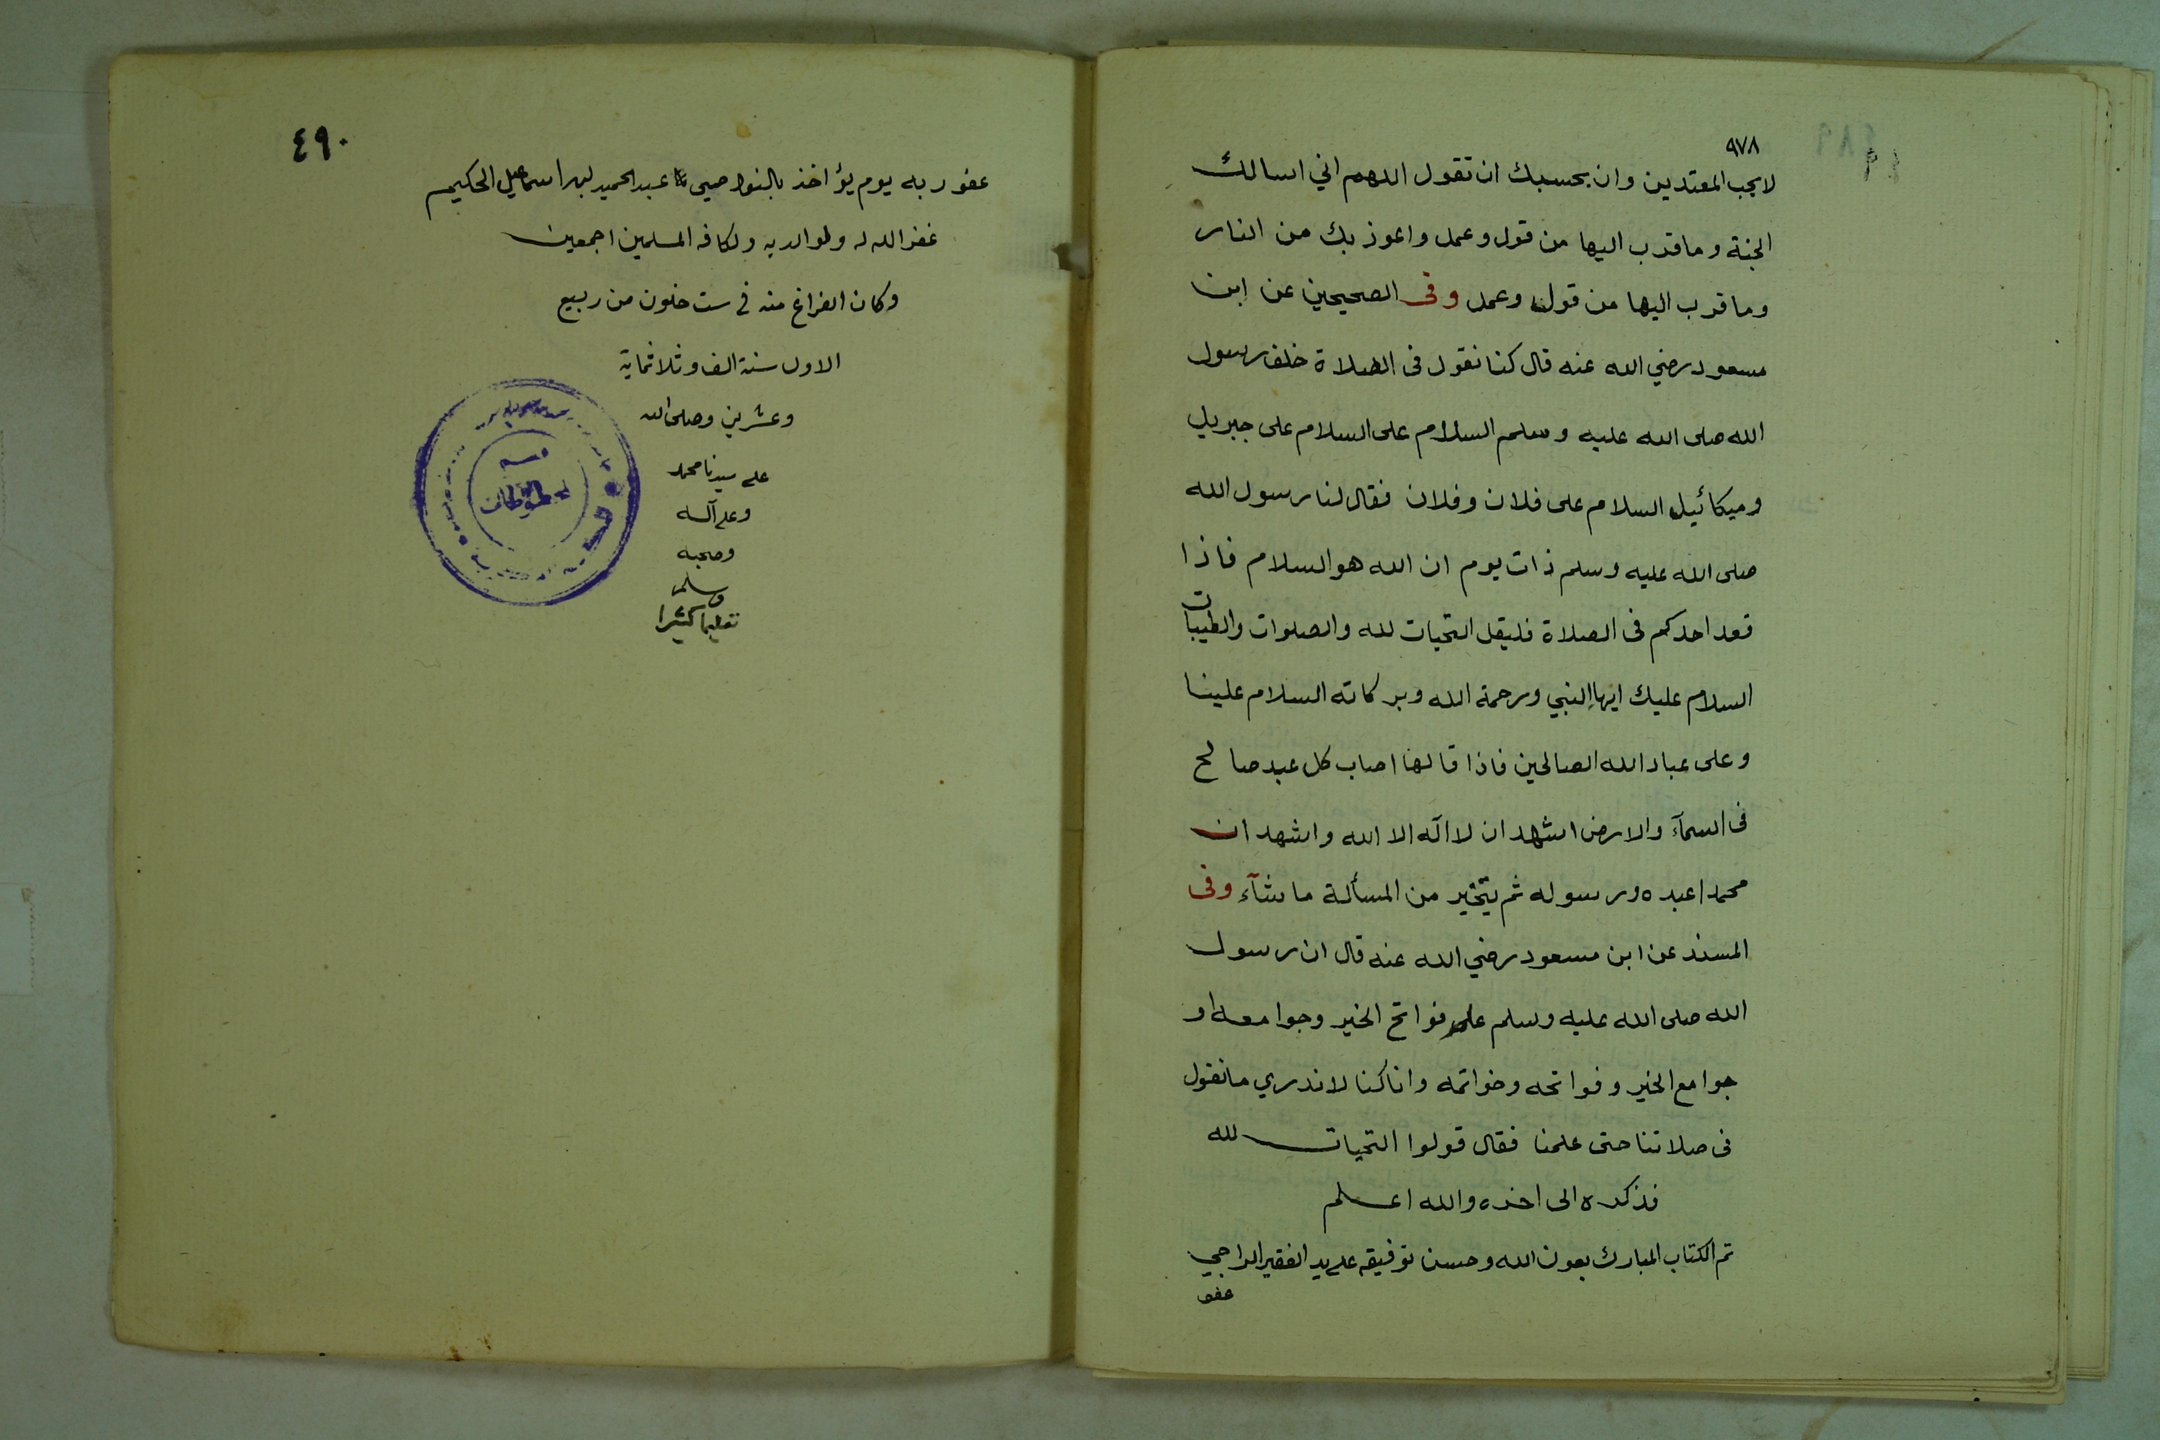 ٩٧٨
لا يحب المعتدين وان بحسبك ان تقول اللهم اني اسالك
الجنة وما قرب اليها من قول وعمل واعوذ بك من النار
وما قرب اليها من قول وعمل وفى الصحيحين عن ابن
مسعود رضي الله عنه قال كنا نقول فى الصلاة خلف رسول
الله صلى الله عليه وسلم السلام على السلام على جبريل
وميكائيل السلام على فلان وفلان فقال لنا رسول الله
صلى الله عليه وسلم ذات يوم ان الله هو السلام فاذا
قعد احدكم فى الصلاة فليقل التحيات لله والصلوات والطيبات
السلام عليك ايها النبي ورحمة الله وبركاته السلام علينا
وعلى عباد الله الصالحين فاذا قالها اصاب كل عبد صالح
فى السمآء والارض اشهد ان لا اله الا الله واشهد ان
محمدا عبده ورسوله ثم يتخير من المسألة ما شآء وفى
المسند عن ابن مسعود رضي الله عنه قال ان رسول
الله صلى الله عليه وسلم علم فواتح الخير وجوامعه او
جوامع الخير وفواتحه وخواتمه وانا كنا لا ندري ما نقول
فى صلاتنا حتى علمنا فقال قولوا التحيات لله
فذكره الى اخره والله اعلم
تم الكتاب المبارك بعون الله وحسن توفيقه على يد الفقير الراجي
عفو
٤٩٠
عفو ربه يوم يؤاخذ بالنواصي عبد الحميد بن اسماعيل الحكيم
غفر الله له ولوالديه ولكافه المسلمين اجمعين
وكان الفراغ منه في ست خلون من ربيع
الاول سنة الف وثلاثماية
وعشرين وصلى الله
على سيدنا محمد
وعلى آله
وصحبه
وسلم
تسليما كثيرا
قسم
المخطوطات